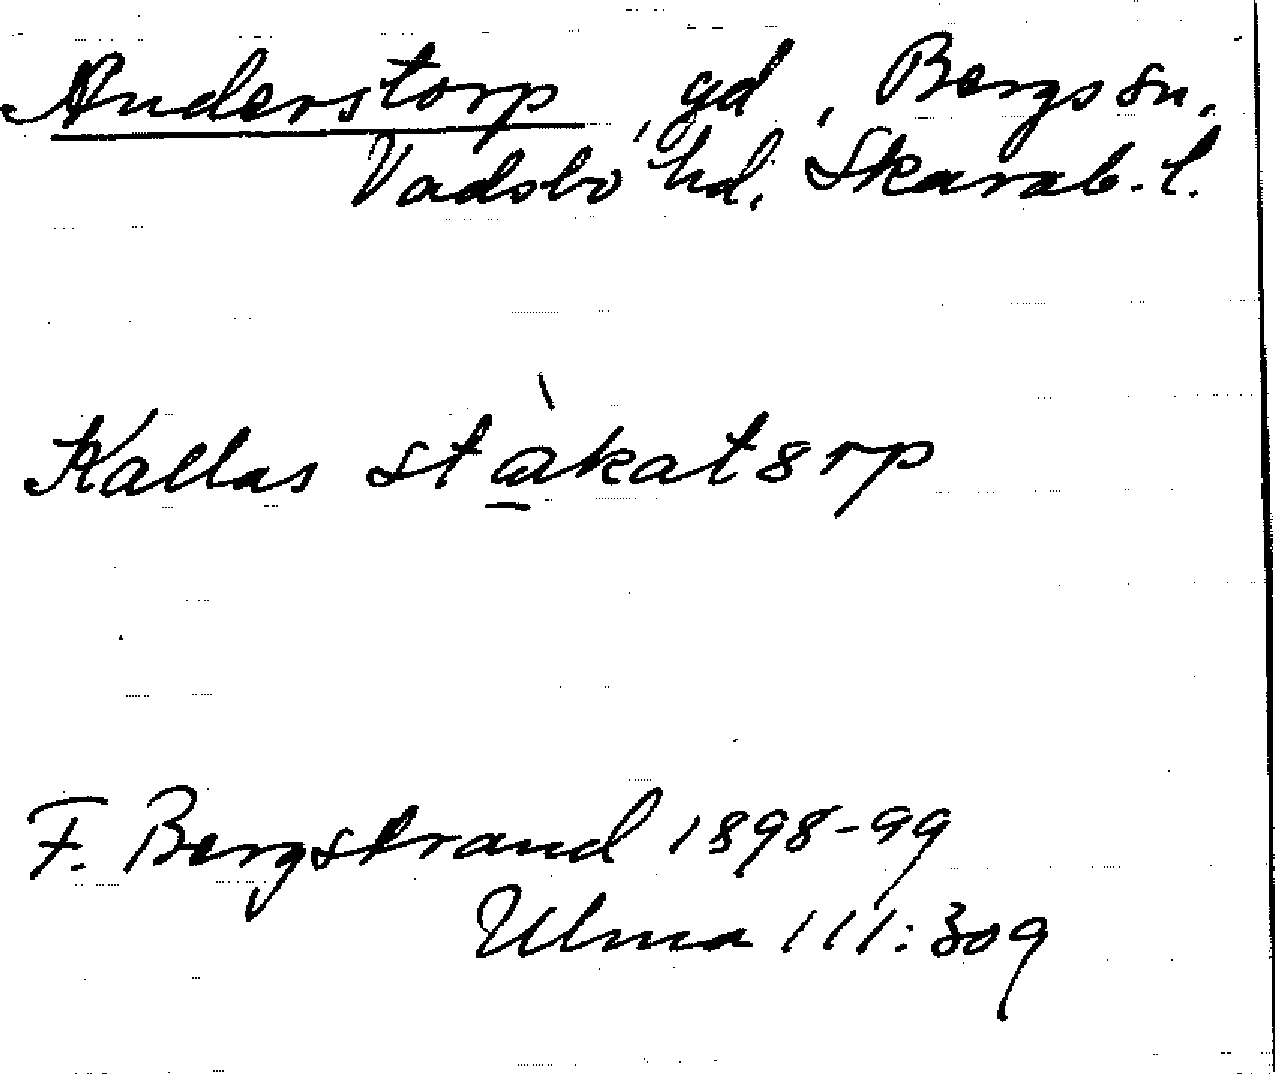 Anderstorp, gd, Bergs sn,
Vadsbo hd, Skarab. l.
Kallas stàkatɞrp
F. Bergstrand 1898-99
Ulma 111:309